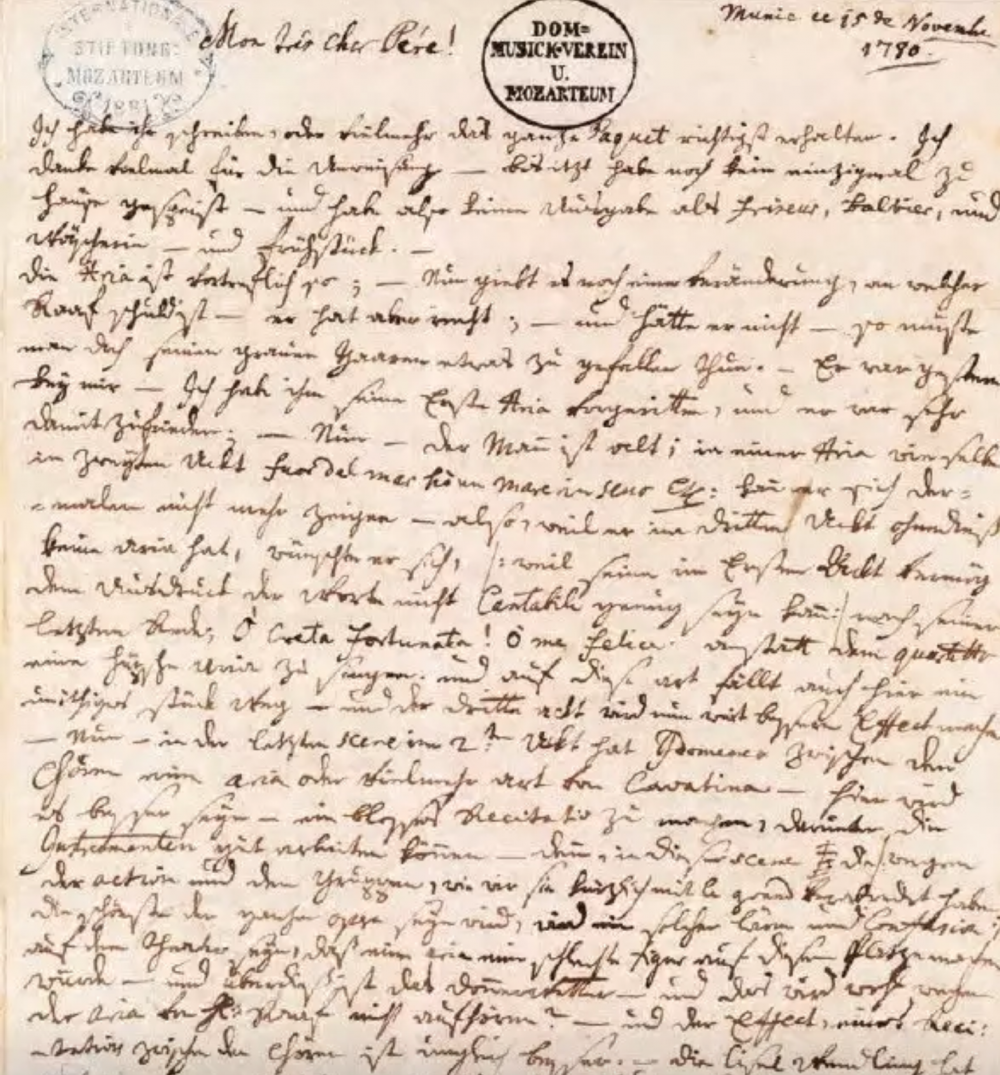 INTERNATIONALE
STIFTUNG:
MOZARTEUM
1881
DOM=
MUSICK-VEREIN
U.
MOZARTEUM
Munic ce 15 de Novembre
1780.
Mon trés cher Pére!
Ich habe ihr schreiben, oder vielmehr das ganze Paquet richtigst erhalten. Ich
danke vielmal für die Anweisung — bis itzt habe noch kein einzigesmal zu
hause gespeist — und habe also keine Ausgabe als friseur, balbier, und
Wäscherin — und frühstück. —
die Aria ist vortreflich so; — Nun giebt es noch eine Veränderung, an welcher
Raaff schuld ist — er hat aber recht; — und hätte er nicht — so müste
man doch seinen grauen Haaren etwas zu gefallen thun. — Er war gestern
bey mir — Ich hab ihm seine Erste Aria vorgeritten, und er war sehr
damit zufrieden; — Nun — der Mann ist alt; in einer Aria wie selbe
im zweyten Ackt fuor del mar hò un mare in seno etc: kann er sich der=
=malen nicht mehr zeigen — also, weil er im dritten Ackt ohnediess
keine aria hat, wünschte er sich, /: weil seine im Ersten Ackt vermög
dem Ausdruck der Worte nicht Cantabile genug seyn kann :/ nach seiner
letzten Rede; O Creta fortunata! O me felice. anstatt dem quartetto
eine hüpsche Aria zu singen. und auf diese art fällt auch hier ein
unöthiges stück Weg — und der dritte ackt wird nun weit bessern Effect machen
— Nun — in der letzten scene im 2:t Ackt hat Idomeneo zwischen den
Chören eine aria oder vielmehr art von Cavatina — hier wird
es besser seyn — ein blosses Recitativ zu machen, darunter die
Instrumenten gut arbeiten können — denn, in dieser scene die /: wegen
der action und den Gruppen, wie wir sie kürzlich mit le grand verabredet haben
die schönste der ganzen opera seyn wird, wird ein solcher lärm und Confusion
auf dem theater seyn, daß eine aria eine schlechte figur auf diesem Platze machen
würde — und überdiess ist das donnerwetter — und das wird wohl wegen
der Aria von H: Raaff nicht aufhören? — und der Effect, eines Reci:
=tativs zwischen den Chören ist ungleich besser. — die lisel wendling hat